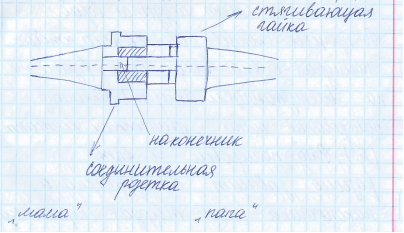 стягивающая
гайка
наконечник
соединительная
розетка
„мама“ „папа“